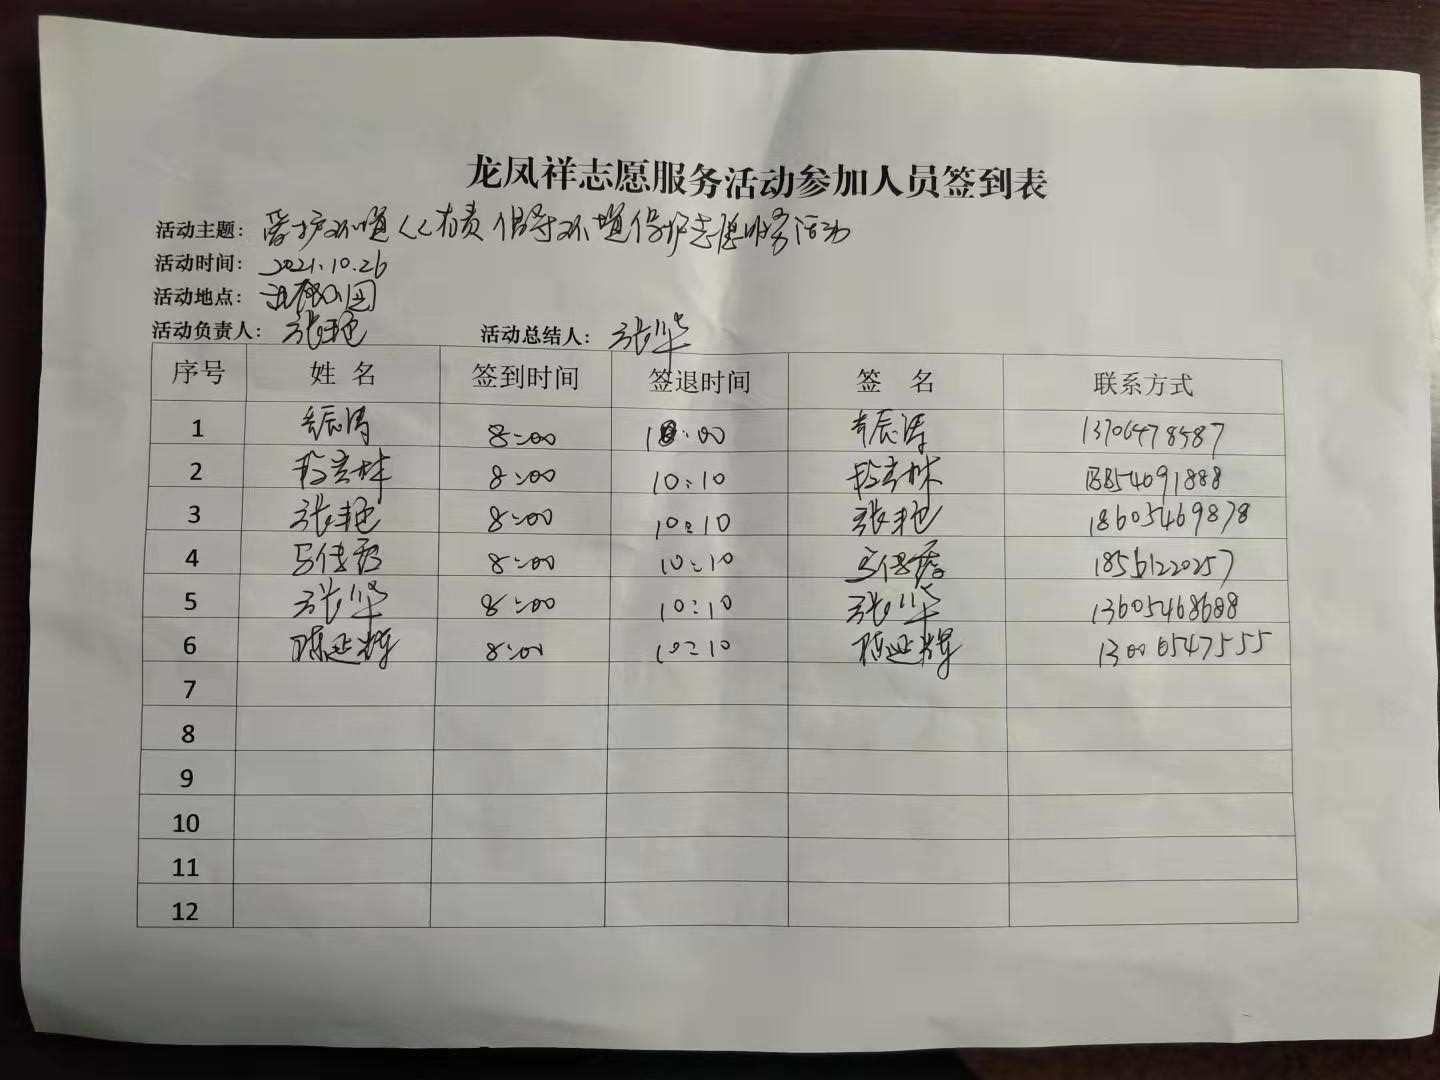 龙凤祥志愿服务活动参加人员签到表
活动主题： 爱护环境人人有责 倡导环境保护志愿服务活动
活动时间： 2021.10.26
活动地点： 公园
活动负责人： 张艳 活动总结人： 张华
序号 姓 名 签到时间 签退时间 签 名 联系方式
1 振涛 8:00 10:00 振涛 13706478587
2 8:00 10:10 18854691888
3 张艳 8:00 10:10 张艳 18605469878
4 马佳秀 8:00 10:10 马佳秀 18561220257
5 张华 8:00 10:10 张华 13605468688
6 陈延辉 8:00 10:10 陈延辉 13006547555
7
8
9
10
11
12